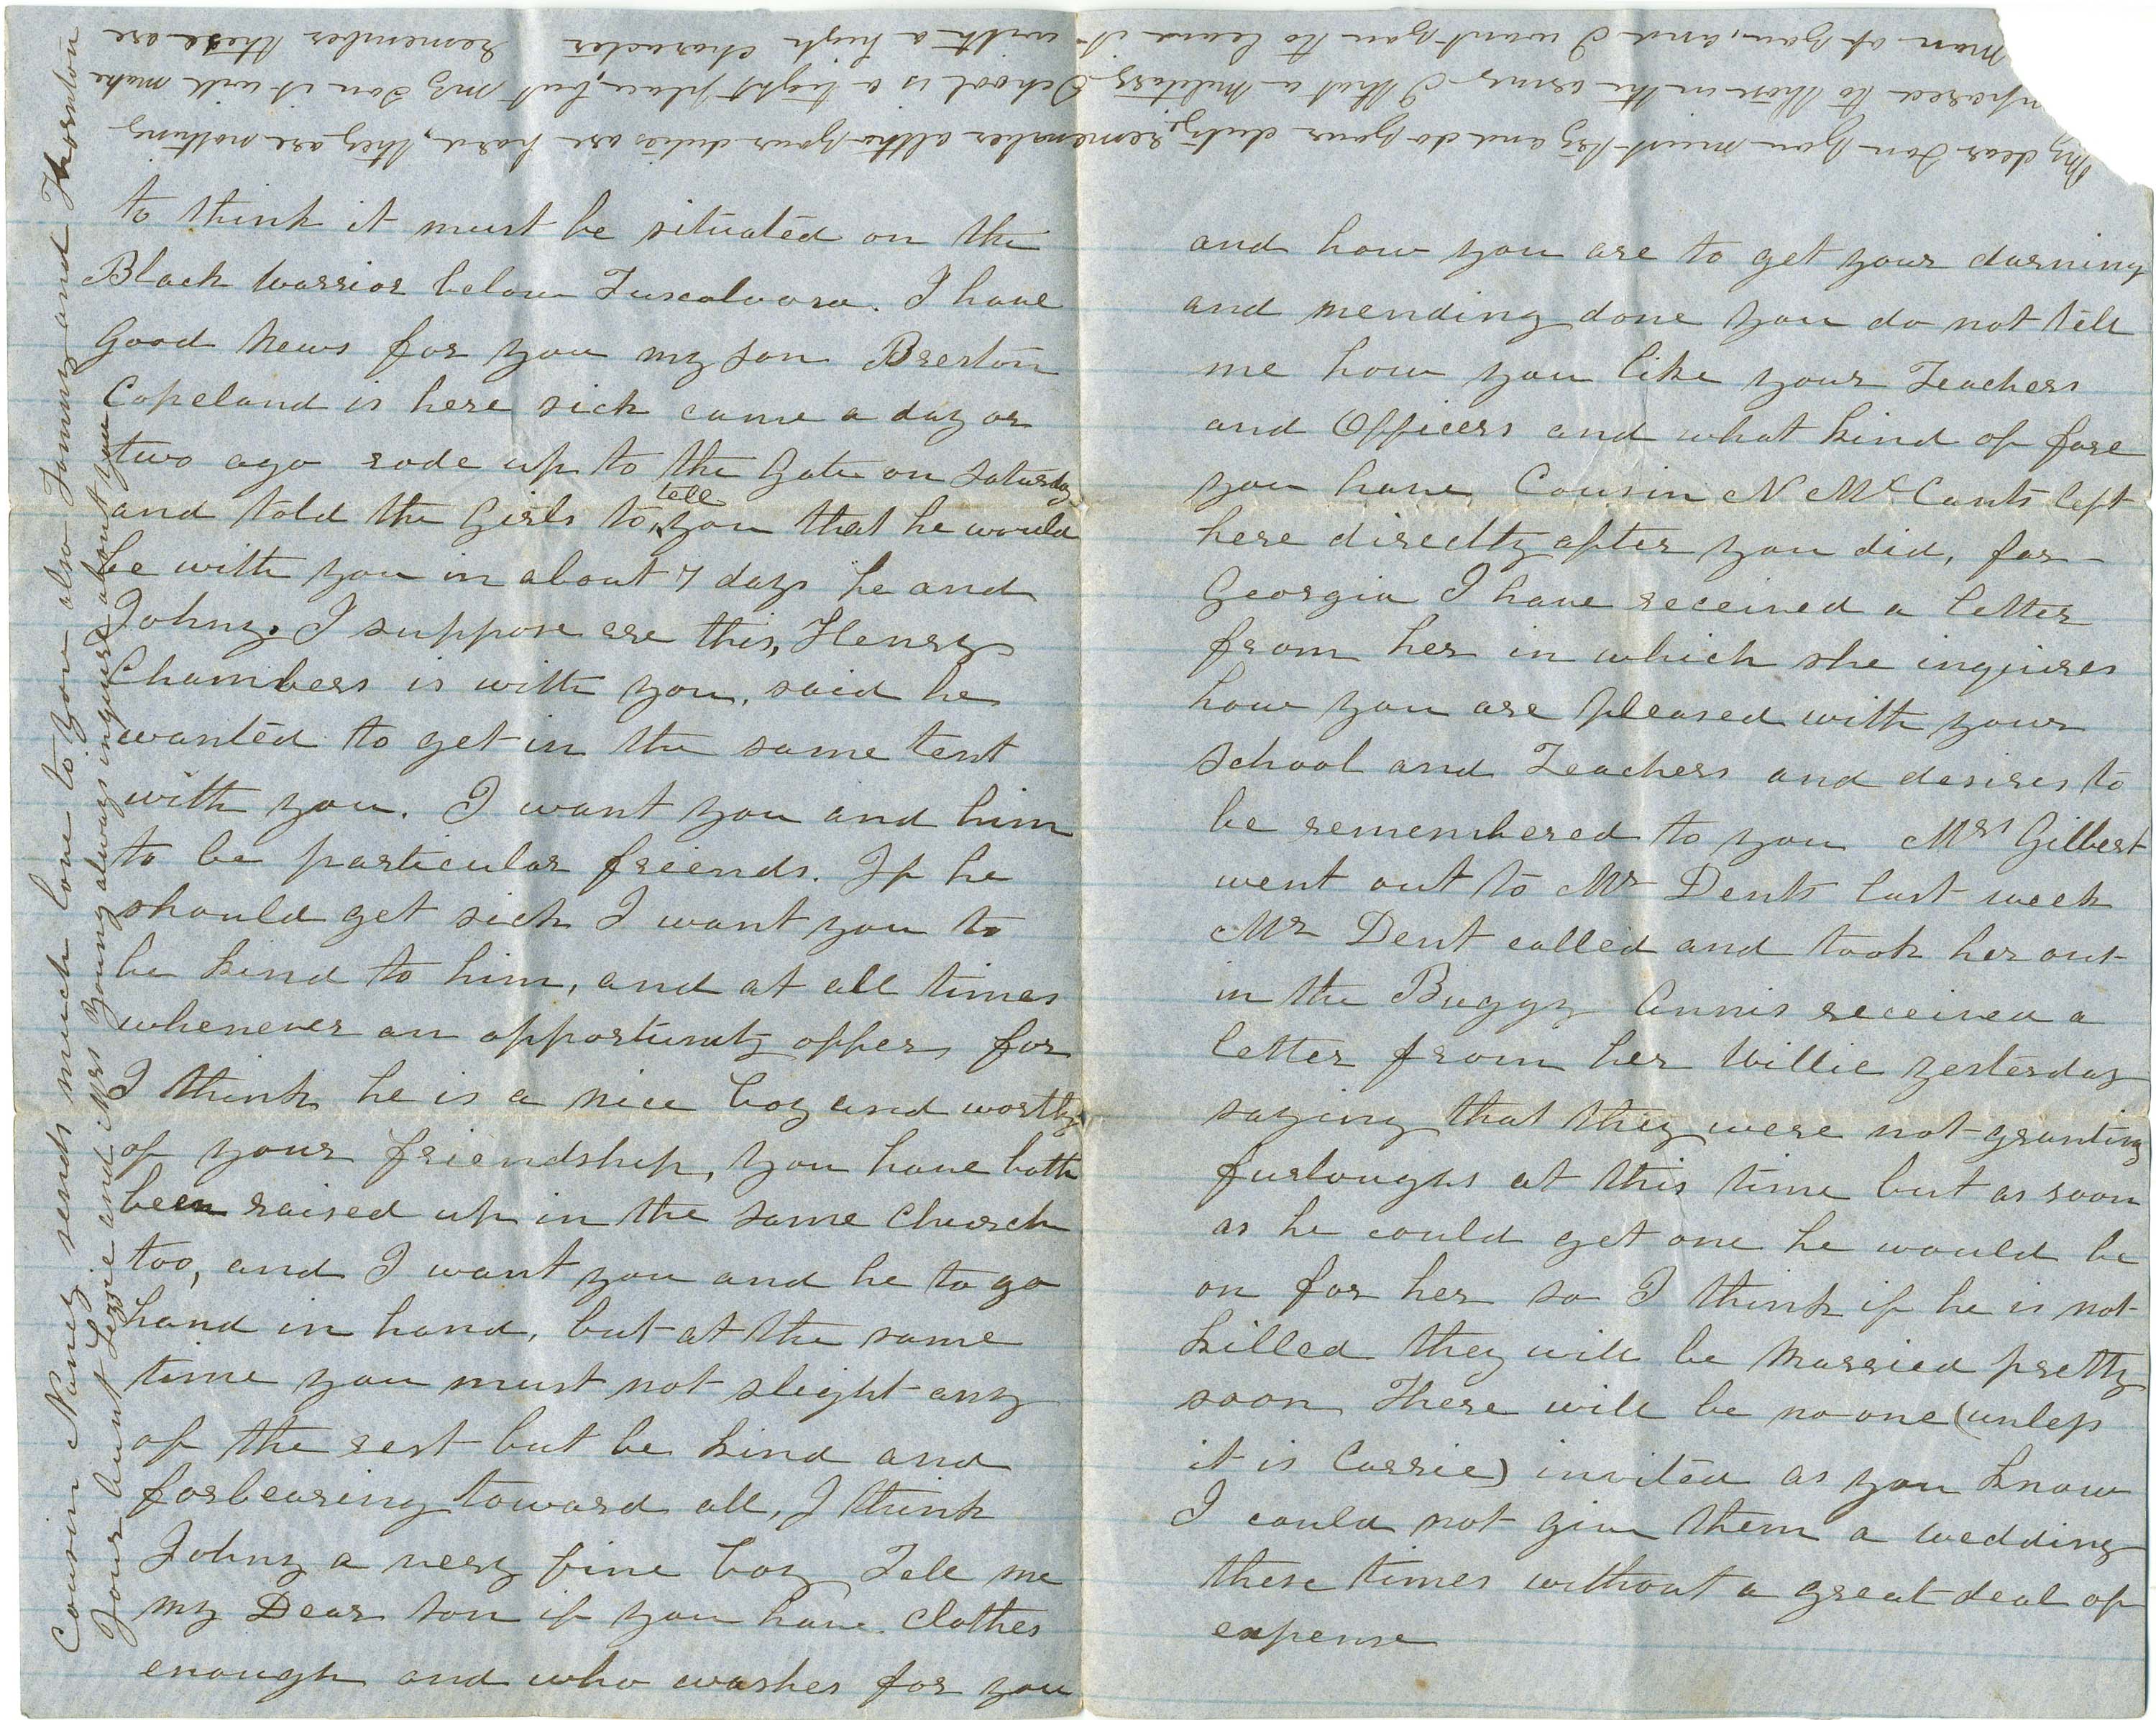 to think it must be situated on the
Black Warrior below Tuscaloosa. I have
good news for you my son Brerton
Copeland is here sick came a day or
two ago rode up to the Gate on Saturday
and told the Girls to tell you that he would
be with you in about 7 days he and
Johny. I suppose are this, Henry
Chambers is with you, said he
wanted to get in the same tent
with you. I want you and him
to be particular friends. If he
should get sick I want you to
be kind to him, and at all times
whenever an opportunity offers for
I think he is a nice boy and worthy
of your friendship, you have both
been raised up in the same Church
too, and I want you and he to go
hand in hand, but at the same
time you must not slight any
of the rest but be kind and
forbearing toward all, I think
Johny a very fine boy Tell me
my Dear son if you have clothes
enough and who washes for you
and how you are to get your darning
and mending done you do not tell
me how you like your Teachers
and Officers and what kind of fare
you have Cousin N McCants left
here directly after you did, for
Georgia I have received a letter
from her in which she inquires
how you are pleased with your
school and Teachers and desires to
be remembered to you Mrs Gilbert
went out to Mr Dents last week
Mr Dent called and took her out
in the Buggy Annis received a
letter from her Willie yesterday
saying that they were not granting
furloughs at this time but as soon
as he could get one he would be
on for her so I think if he is not
killed they will be married pretty
soon There will be no one (unless
it is Carrie) invited as you know
I could not give them a wedding
these times without a great deal of
expense
My dear Son you must try and do your duty, remember altho your duties are hard, they are nothing
mpared to those in the army I that a Military School is a tight place, but my Son it will make
man of you, and I want you to leave it with a high character remember these are
Cousin Nancy sends much love to you also Tommy and Thornton
Your Aunt Lizzie and Mrs Young always inquire about you